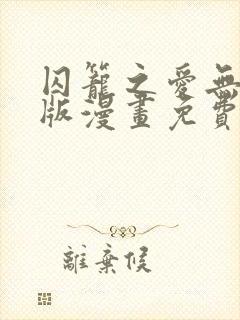 囚籠之愛無
版漫畫免費
離棄候